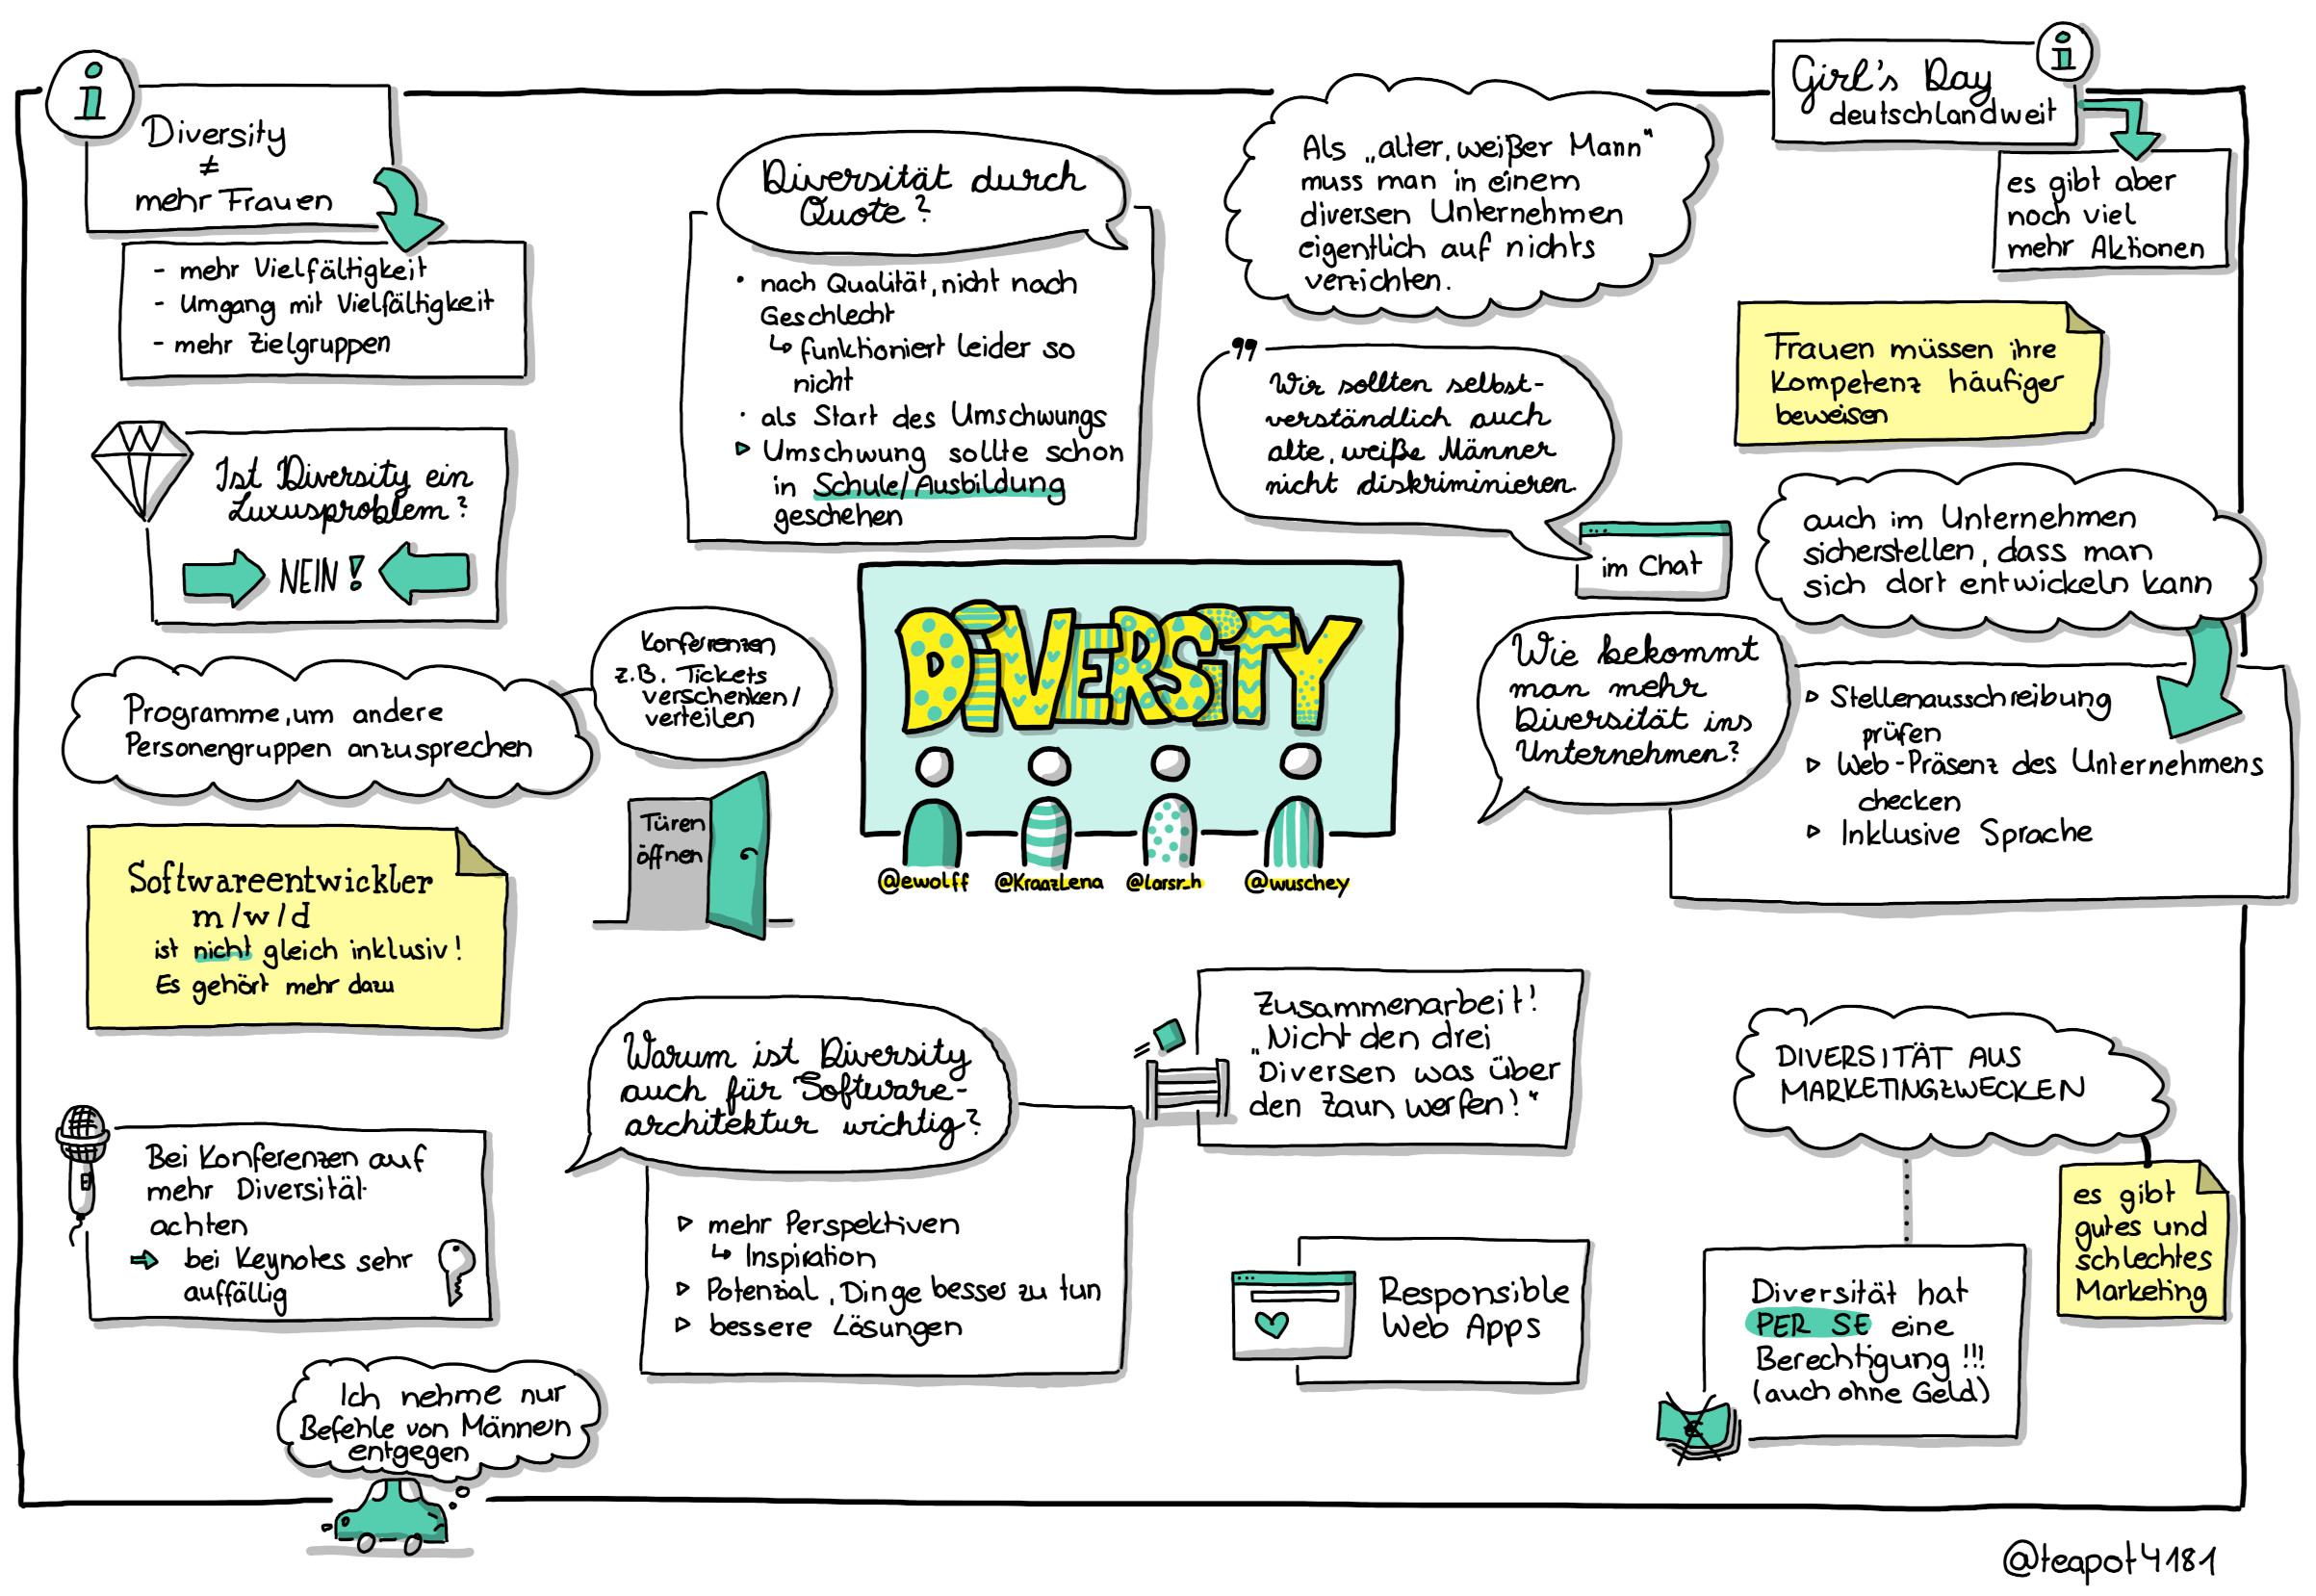 i
Diversity
≠
mehr Frauen
- mehr Vielfältigkeit
- Umgang mit Vielfältigkeit
- mehr Zielgruppen
Ist Diversity ein
Luxusproblem?
NEIN!
Programme, um andere
Personengruppen anzusprechen
Konferenzen
z.B. Tickets
verschenken/
verteilen
Türen
öffnen
Softwareentwickler
m/w/d
ist nicht gleich inklusiv!
Es gehört mehr dazu
Bei Konferenzen auf
mehr Diversität
achten
bei Keynotes sehr
auffällig
Ich nehme nur
Befehle von Männern
entgegen
Diversität durch
Quote?
• nach Qualität, nicht nach
Geschlecht
↳ funktioniert leider so
nicht
• als Start des Umschwungs
▷ Umschwung sollte schon
in Schule/Ausbildung
geschehen
DiVERSiTY
@ewolff
@KraazLena
@larsr_h
@wuschey
Warum ist Diversity
auch für Software-
architektur wichtig?
▷ mehr Perspektiven
↳ Inspiration
▷ Potenzial, Dinge besser zu tun
▷ bessere Lösungen
Als „alter, weißer Mann“
muss man in einem
diversen Unternehmen
eigentlich auf nichts
verzichten.
"
Wir sollten selbst-
verständlich auch
alte, weiße Männer
nicht diskriminieren.
im Chat
i
Girl's Day
deutschlandweit
es gibt aber
noch viel
mehr Aktionen
Frauen müssen ihre
Kompetenz häufiger
beweisen
auch im Unternehmen
sicherstellen, dass man
sich dort entwickeln kann
Wie bekommt
man mehr
Diversität ins
Unternehmen?
▷ Stellenausschreibung
prüfen
▷ Web-Präsenz des Unternehmens
checken
▷ Inklusive Sprache
Zusammenarbeit!
„Nicht den drei
Diversen was über
den Zaun werfen!“
Responsible
Web Apps
DIVERSITÄT AUS
MARKETINGZWECKEN
es gibt
gutes und
schlechtes
Marketing
Diversität hat
PER SE eine
Berechtigung!!!
(auch ohne Geld)
€
@teapot4181